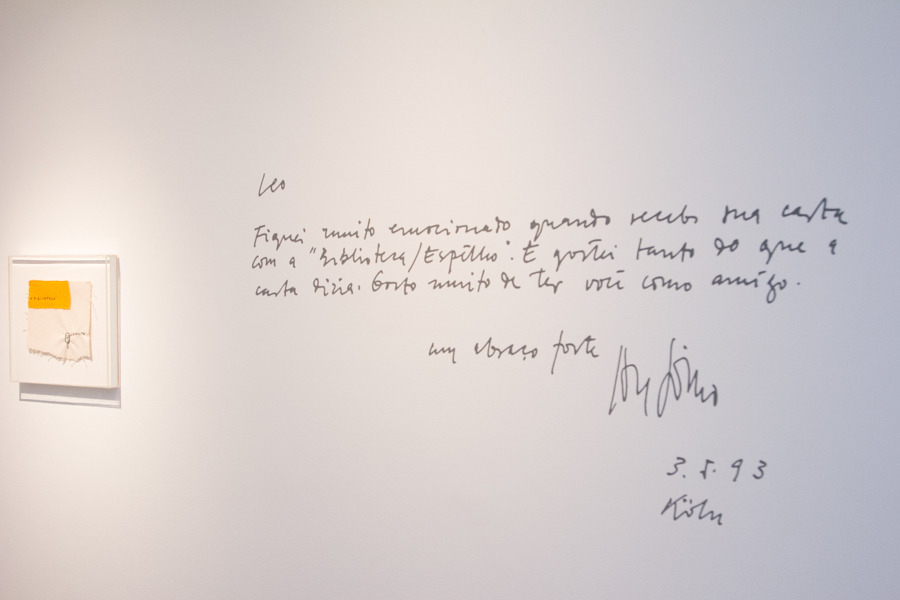 Leo
Fiquei muito emocionado quando recebi sua carta
com a "Biblioteca/Espelho". E gostei tanto do que a
carta dizia. Gosto muito de ter você como amigo.
um abraço forte
3.5.93
Köln